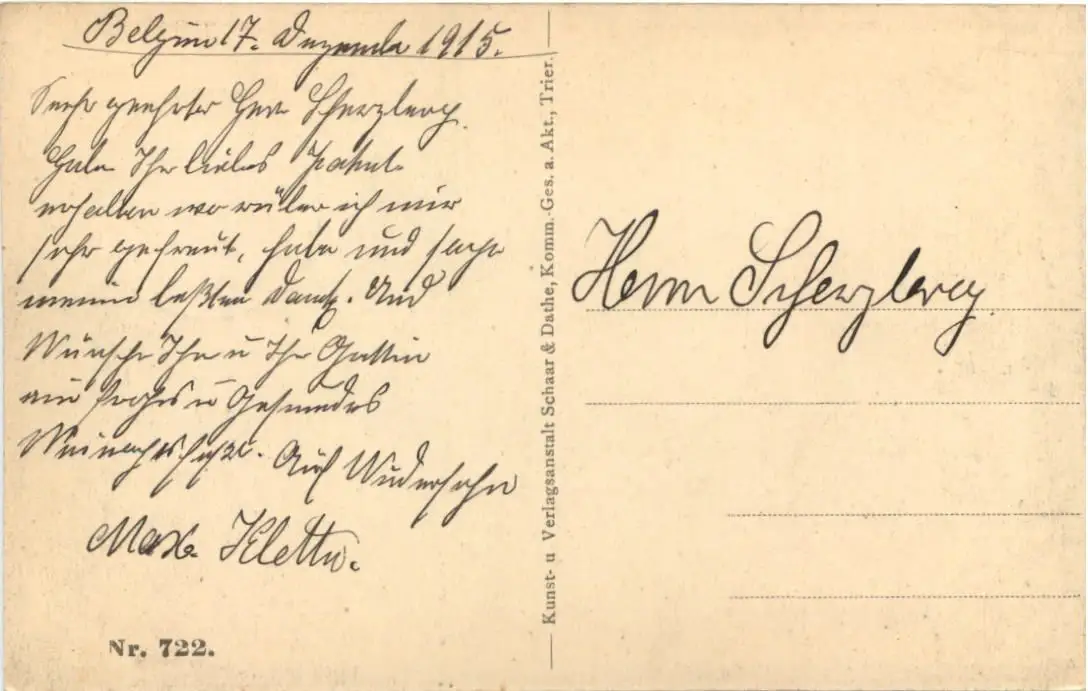 Belgien 17. Dezember 1915.
Sehr geehrter Herr Scherzberg.
Habe Ihr liebes Packet
erhalten worüber ich mir
sehr gefreut, habe und sage
meinen besten Dank. Und
Wünsche Ihn u Ihr Gattin
ein frohes u Gesundes
Weinachtsfest. Auf Wiedersehn
Max
Nr. 722.
Kunst- u Verlagsanstalt Schaar & Dathe, Komm.-Ges. a. Akt., Trier.
Herrn Scherzberg.